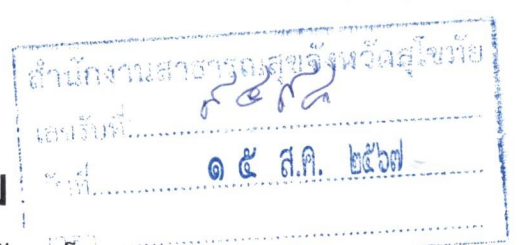 สำนักงานสาธารณสุขจังหวัดสุโขทัย
เลขรับที่
วันที่ ๑๕ ส.ค. ๒๕๖๗